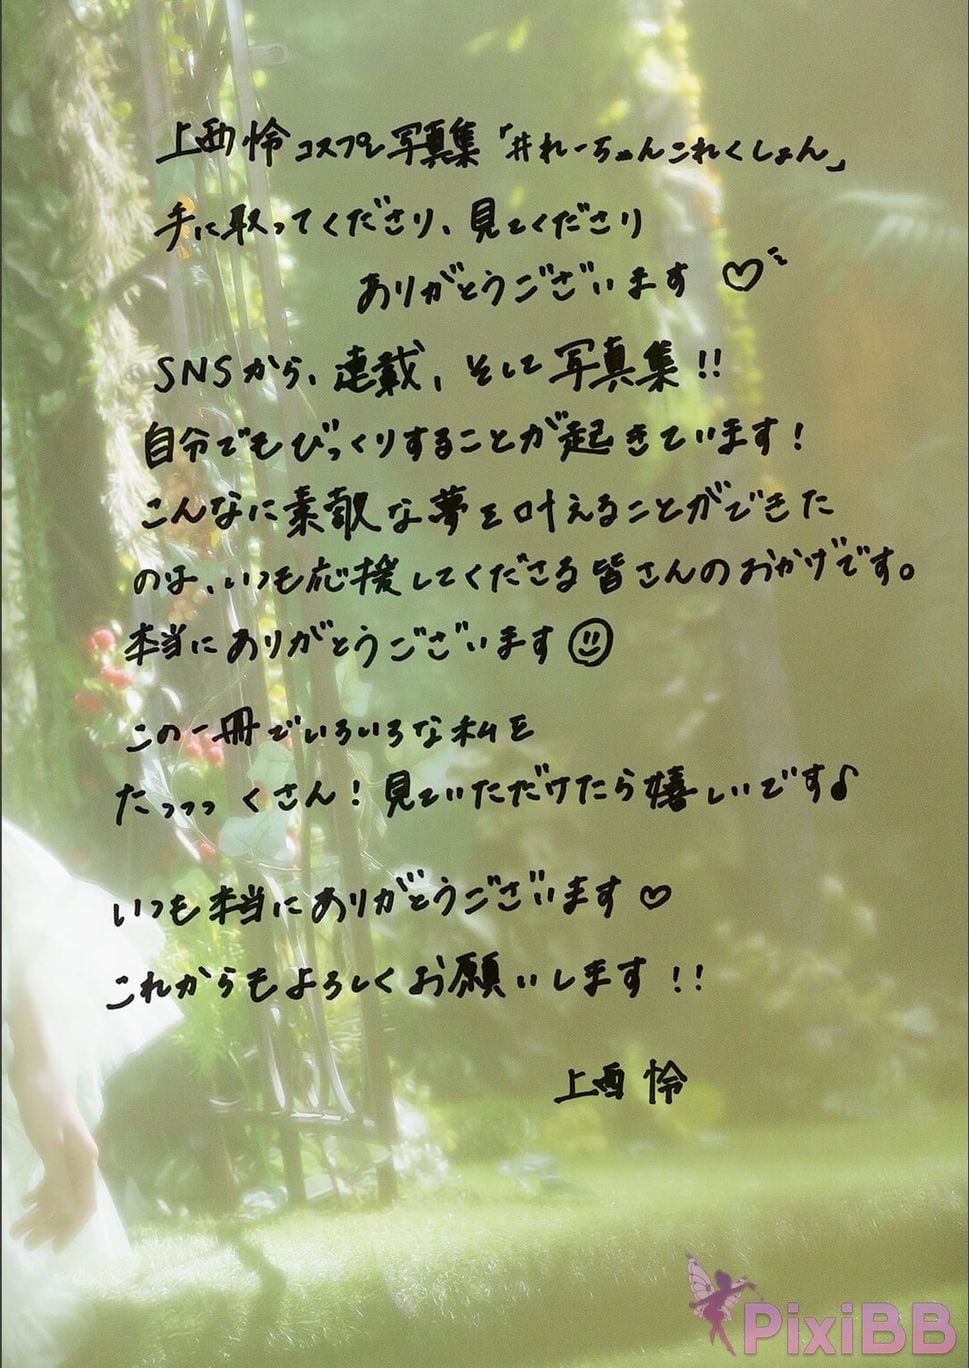 上西怜コスプレ写真集「#れーちゃんこれくしょん」
手に取ってくださり、見てくださり
ありがとうございます♡
SNSから、連載、そして写真集!!
自分でもびっくりすることが起きています!
こんなに素敵な夢を叶えることができた
のは、いつも応援してくださる皆さんのおかげです。
本当にありがとうございます☺
この一冊でいろいろな私を
たっっっくさん!見ていただけたら嬉しいです♪
いつも本当にありがとうございます♡
これからもよろしくお願いします!!
上西怜
PixiBB